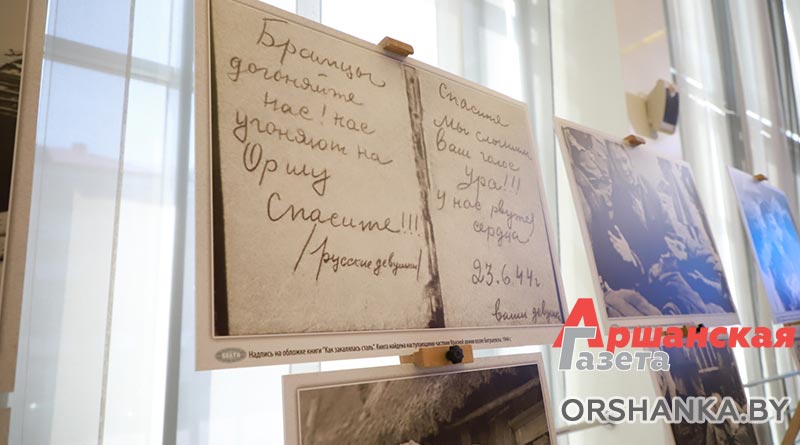 Братцы
догоняйте
нас! нас
угоняют на
Оршу
Спасите!!!
/русские девушки/
Спасите
Мы слышим
ваш голос
Ура!!!
у нас рвутся
сердца
23.6.44г.
ваши девушки
БЕЛТА
Надпись на обложке книги "Как закалялась сталь". Книга найдена наступающими частями Красной армии возле Богушевска. 1944 г.
Аршанская
Газета
ORSHANKA.BY